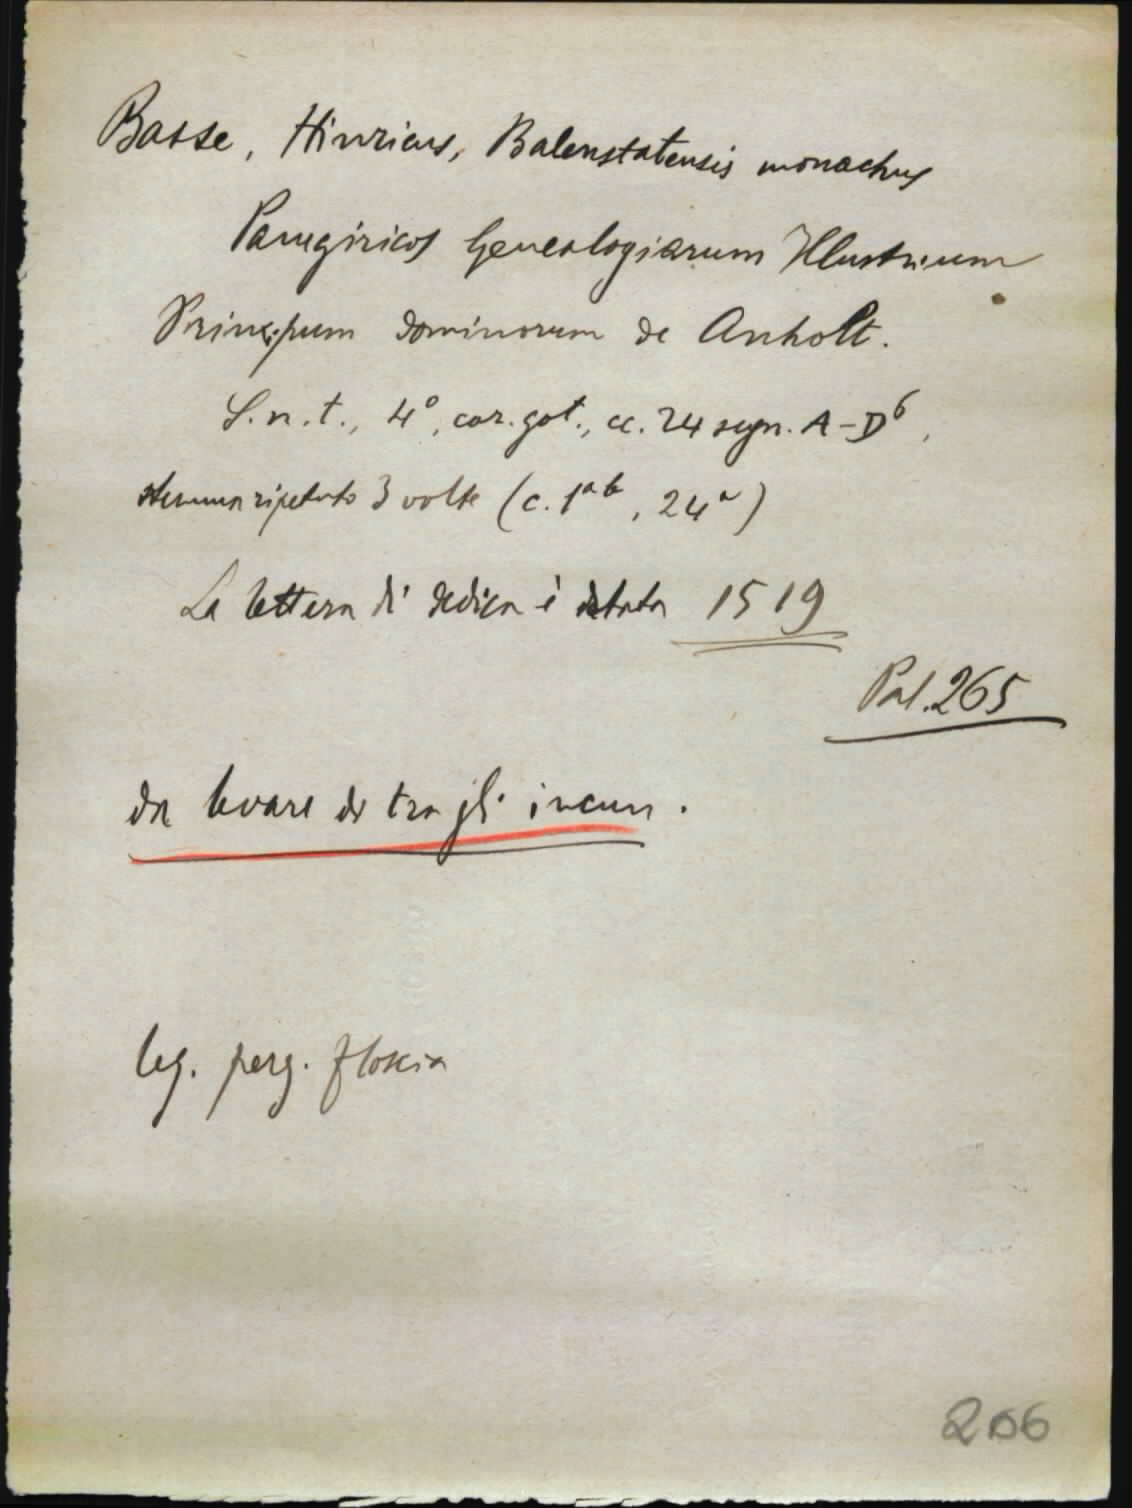 Basse, Hinricus, Balenstatensis monachus
Panegiricos Genealogiarum Illustrium
Principum dominorum de Anholt.
S.n.t., 4°, car. got., cc. 24 segn. A-D⁶,
stemma ripetuto 3 volte (c. 1ᵃᵇ, 24ᵃ)
La lettera di dedica è datata 1519
Pal. 265
da levare da tra gli incun.
leg. perg. floscia
206